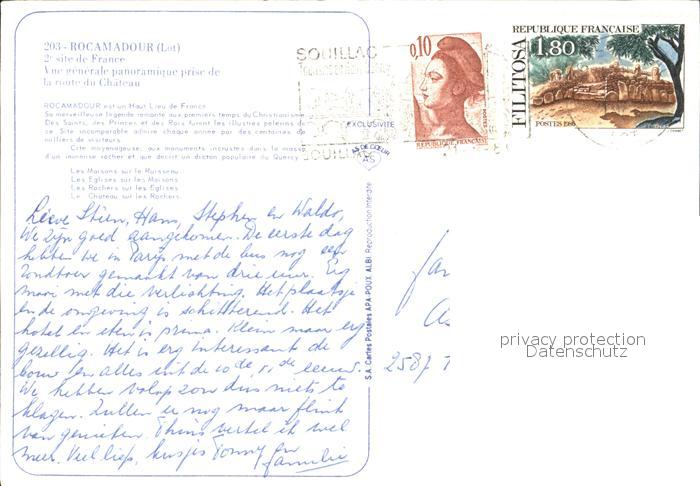 203 - ROCAMADOUR (Lot)
2e site de France
Vue générale panoramique prise de
la route du Château
ROCAMADOUR est un Haut Lieu de France
Sa merveilleuse légende remonte aux premiers temps du Christianisme
Des Saints, des Princes et des Rois furent les illustres pèlerins de
ce Site incomparable admiré chaque année par des centaines de
milliers de visiteurs.
Cité moyenageuse, aux monuments incrustés dans la masse
d'un immense rocher et que décrit un dicton populaire du Quercy
Les Maisons sur le Ruisseau
Les Eglises sur les Maisons
Les Rochers sur les Eglises
Le Château sur les Rochers.
SOUILLAC
SOUILLAC
0,10
REPUBLIQUE FRANÇAISE
REPUBLIQUE FRANÇAISE
1,80
FILITOSA
POSTES 1986
EXCLUSIVITÉ
AS DE CŒUR
AS
S.A. Cartes Postales APA-POUX ALBI Reproduction Interdite
Lieve Stien, Hans, Stephen en Waldo,
We zijn goed aangekomen. De eerste dag
hebben we in Parijs met de bus nog een
rondtoer gemaakt van drie uur. Erg
mooi met die verlichting. Het plaatsje
en de omgeving is schitterend. Het
hotel en eten is prima. Klein maar erg
gezellig. Het is erg interessant de
bouw en alles uit de 10de, 11de eeuw.
We hebben volop zon dus niets te
klagen. Zullen er nog maar flink
van genieten. Thuis vertel ik wel
meer. Veel liefs, kusjes Tonny en
familie
2587
privacy protection
Datenschutz